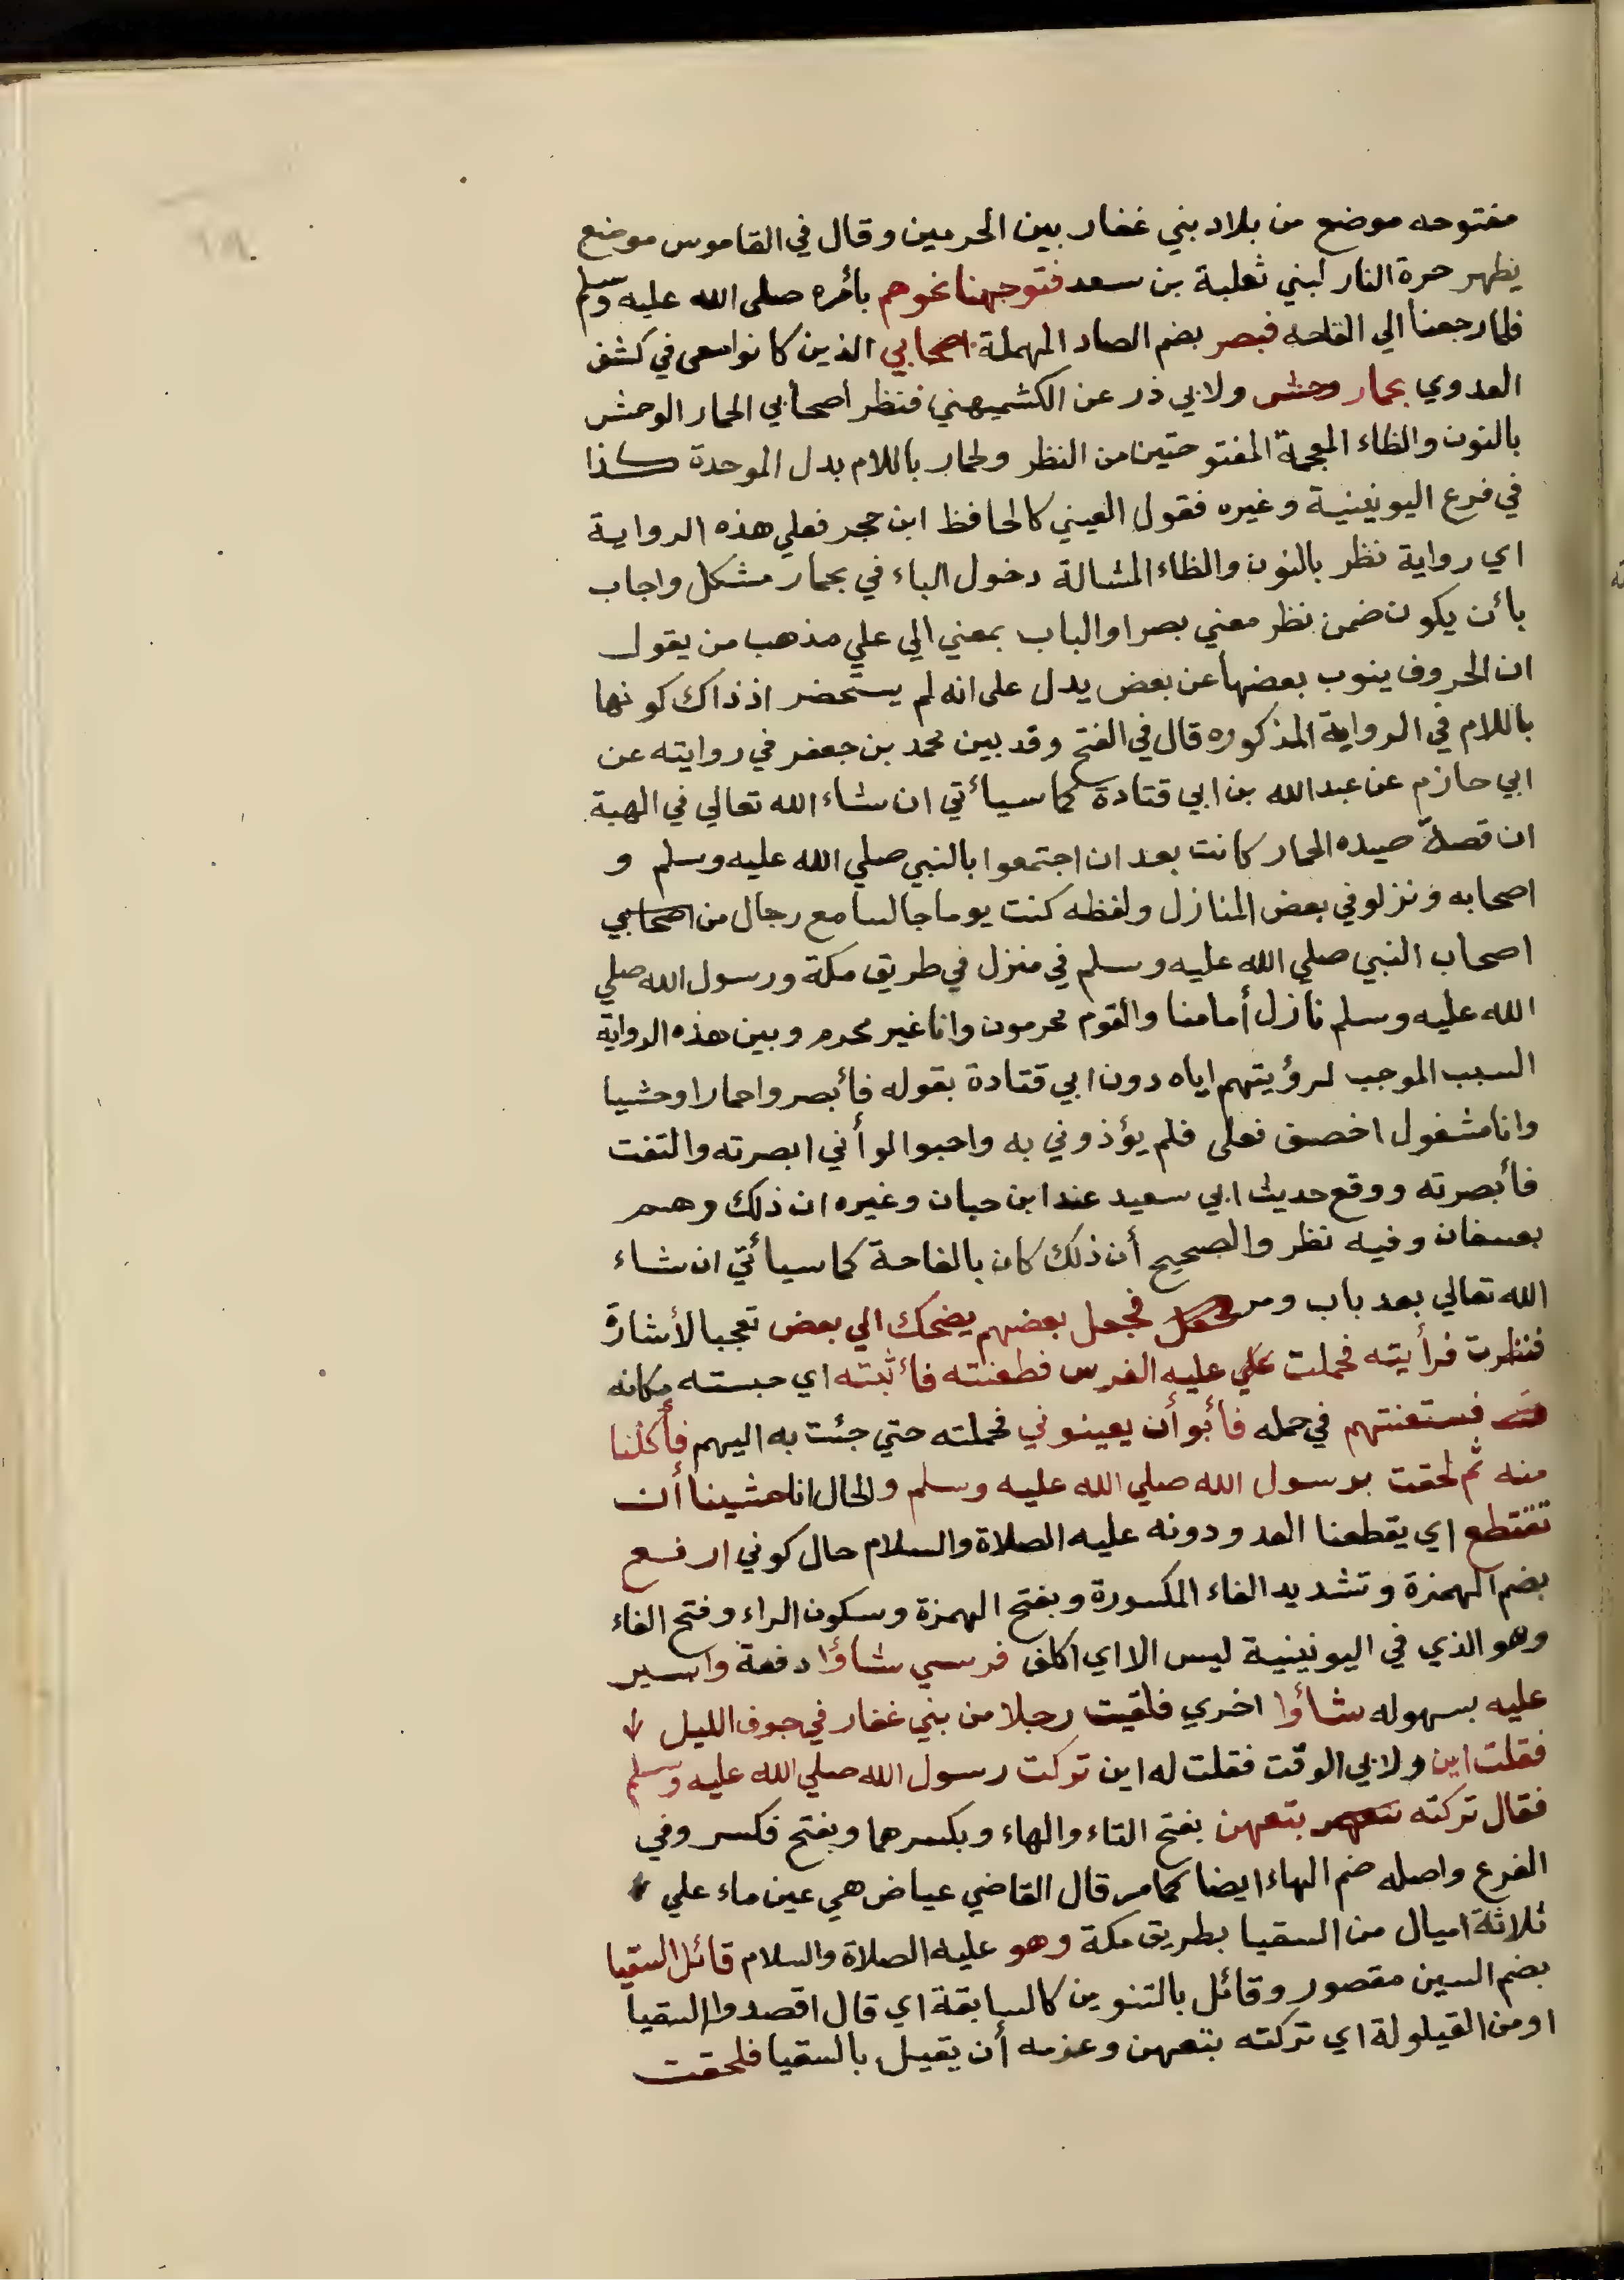 مفتوحه موضع من بلاد بني غفار بين الحرمين وقال في القاموس موضع
يظهر حرة النار لبني ثعلبة بن سعد فتوجهنا نحوهم بأمره صلى الله عليه وسلم
فلما رجعنا الي القاحه فبصر بضم الصاد المهملة اصحابي الذين كانوا معى في كشف
العدوي بحمار وحش ولابي ذر عن الكشميهني فنظر اصحابي الحمار الوحش
بالنون والظاء المعجمة المفتوحتين من النظر ولحمار باللام بدل الموحدة كذا
في فرع اليونينية وغيره فقول العيني كالحافظ ابن حجر فعلي هذه الرواية
اي رواية نظر بالنون والظاء المشالة دخول الباء في بحمار مشكل واجاب
بأن يكون ضمن نظر معني بصر اوالباب بمعني الي علي مذهب من يقول
ان الحروف ينوب بعضها عن بعض يدل على انه لم يستحضر اذ ذاك كونها
باللام في الرواية المذكوره قال في الفتح وقد بين محمد بن جعفر في روايته عن
ابي حازم عن عبد الله بن ابي قتادة كما سيأتي ان شاء الله تعالي في الهبة
ان قصة صيده الحمار كانت بعد ان اجتمعوا بالنبي صلي الله عليه وسلم و
اصحابه ونزلو في بعض المنازل ولفظه كنت يوما جالسا مع رجال من اصحابي
اصحاب النبي صلي الله عليه وسلم في منزل في طريق مكة ورسول الله صلي
الله عليه وسلم نازل أمامنا والقوم محرمون وانا غير محرم وبين هذه الرواية
السبب الموجب لرؤيتهم اياه دون ابي قتادة بقوله فأبصروا حمارا وحشيا
وانا مشغول اخصف نعلى فلم يؤذوني به واحبوا لو أني ابصرته والتفت
فأبصرته ووقع حديث ابي سعيد عند ابن حبان وغيره ان ذلك وهم
بعسفان وفيه نظر والصحيح أن ذلك كان بالقاحة كما سيأتي ان شاء
الله تعالي بعد باب ومر فجعل بعضهم يضحك الي بعض تعجبا لأشارة
فنظرت فرأيته فحملت علي عليه الفرس فطعنته فأثبته اي حبسته مكانه
فستعنتهم في حمله فأبوا أن يعينوني فحملته حتي جئت به اليهم فأكلنا
منه ثم لحقت برسول الله صلي الله عليه وسلم والحال انا خشينا أن
نقتطع اي يقطعنا العدو دونه عليه الصلاة والسلام حال كوني ارفع
بضم الهمزة وتشديد الفاء المكسورة وبفتح الهمزة وسكون الراء وفتح الفاء
وهو الذي في اليونينية ليس الا اي اكلف فرسي شاؤا دفعة واسير
عليه بسهوله شاؤا اخري فلقيت رجلا من بني غفار في جوف الليل
فقلت اين ولابي الوقت فقلت له اين تركت رسول الله صلي الله عليه وسلم
فقال تركته بتعهن بفتح التاء والهاء وبكسرهما وبفتح فكسر وفي
الفرع واصله ضم الهاء ايضا كما مر قال القاضي عياض هي عين ماء علي
ثلاثة اميال من السقيا بطريق مكة وهو عليه الصلاة والسلام قائل السقيا
بضم السين مقصور وقائل بالتنوين كالسابقة اي قال اقصدوا السقيا
او من القيلولة اي تركته بتعهن وعزمه أن يقيل بالسقيا فلحقت